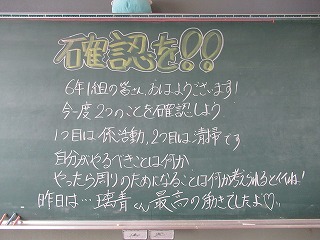 確認を!!
6年1組の皆さん、おはようございます!
今一度2つのことを確認しよう
1つ目は係活動、2つ目は清掃です
自分がやるべきことは何か
やったら周りのためになることは何か考えられるとイイね!
昨日は…くん最高の働きでしたよ♡